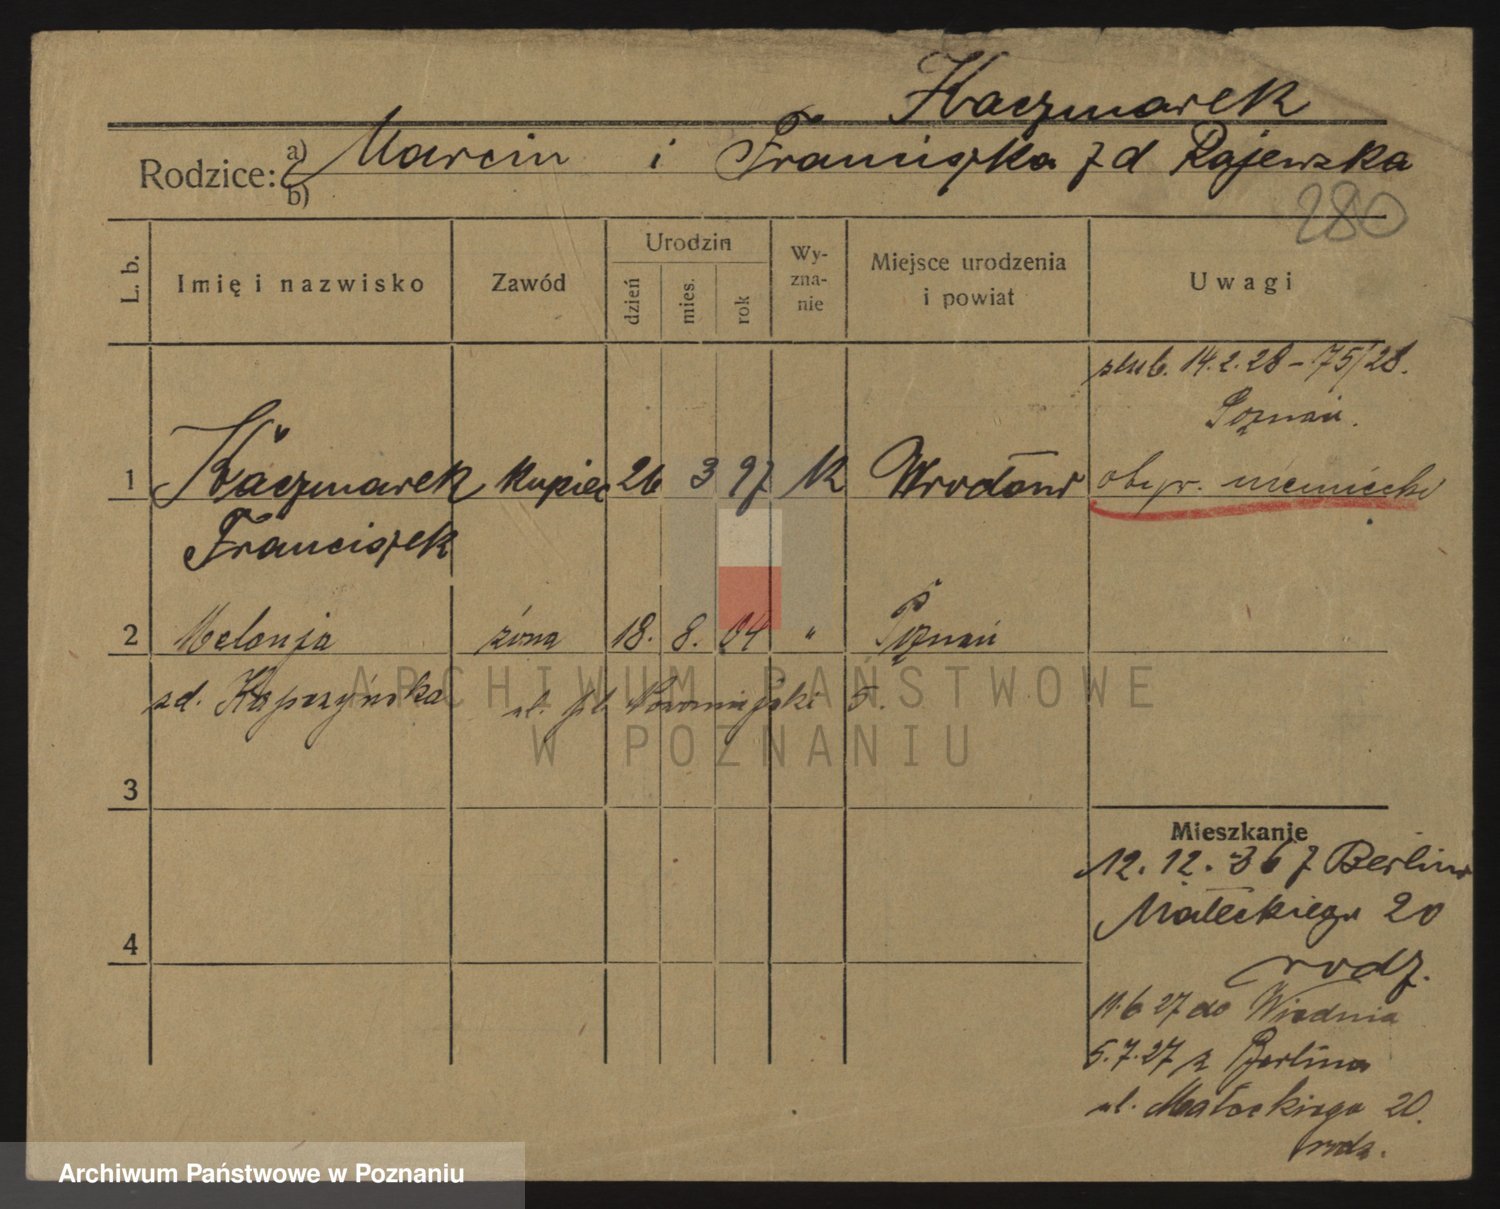 Kaczmarek
Rodzice: a) Marcin i Franciszka z d Rajewska
b)
280
L. b.
Imię i nazwisko
Zawód
Urodzin
dzień
mies.
rok
Wy-
zna-
nie
Miejsce urodzenia
i powiat
Uwagi
ślub. 14.2.28 – 75/28.
Poznań.
1 Kaczmarek kupiec 26 3 97 K obyw. niemiecki
Franciszek
2 Melonja żona 18. 8. 04 " Poznań
zd. Kapczyńska ul. pl. 5.
ARCHIWUM PAŃSTWOWE
W POZNANIU
3
Mieszkanie
12.12.36 z Berlina
Małeckiego 20
4
rodz.
11.6 27 do Wiednia
5.7.27 z Berlina
ul. Małeckiego 20.
rodz.
Archiwum Państwowe w Poznaniu